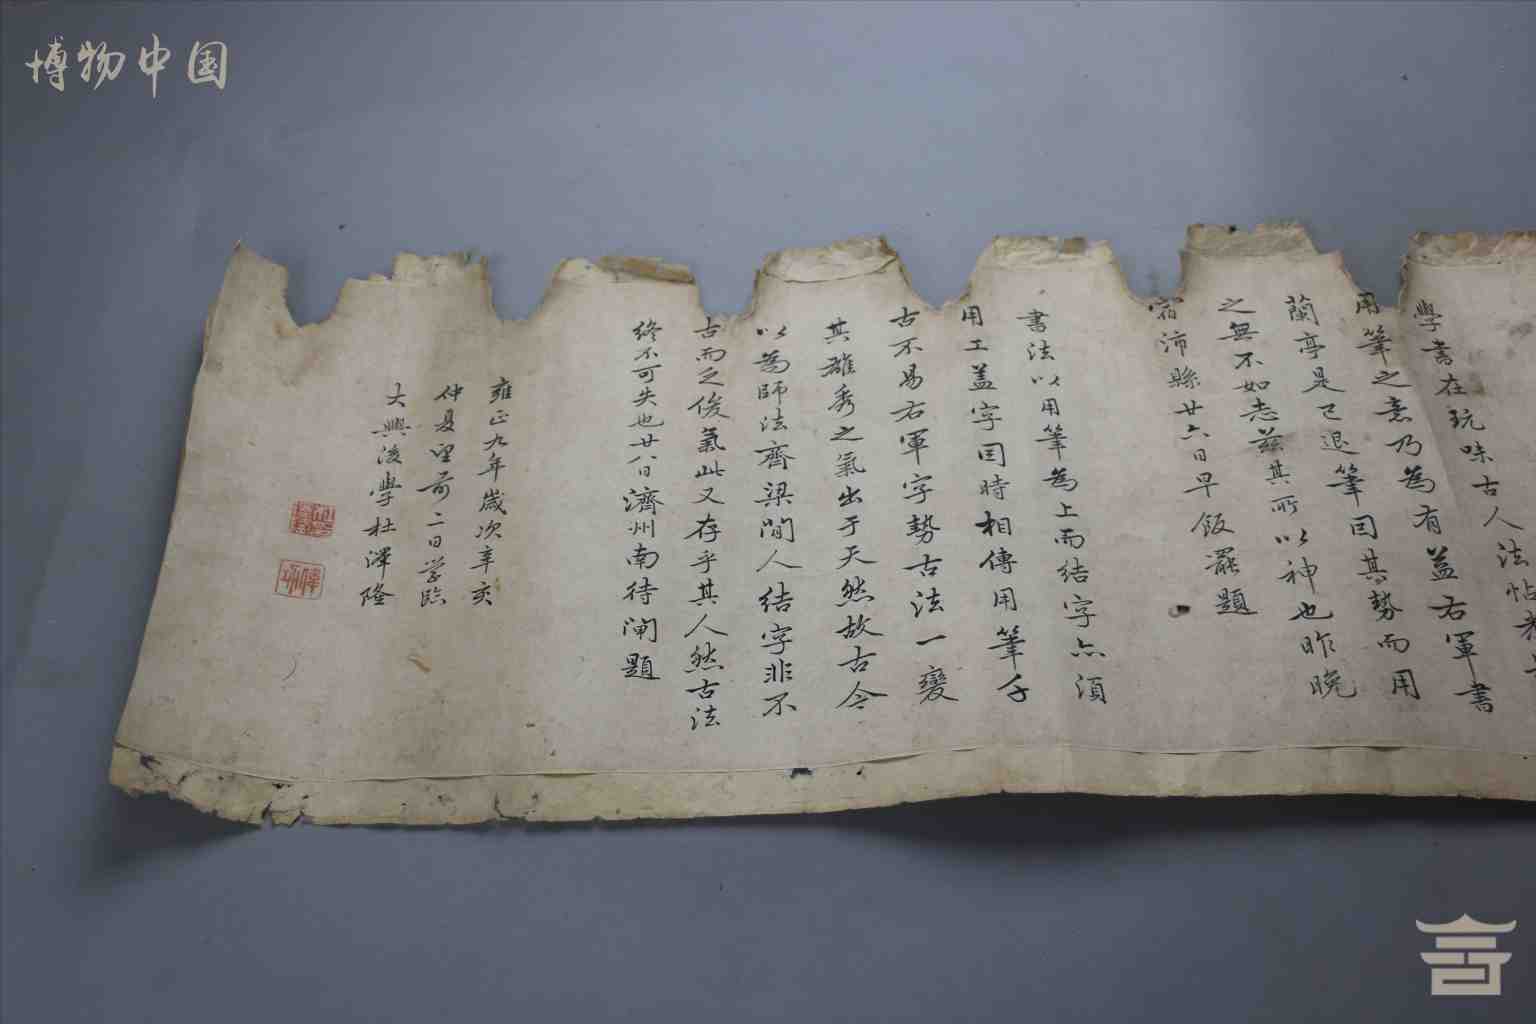 博物中国
學書在玩味古人法帖悉
用筆之意乃為有益右軍書
蘭亭是已退筆因其勢而用
之無不如志茲其所以神也昨晚
宿沛縣廿六日早飯罷題
書法以用筆為上而結字亦須
用工盖字因時相傳用筆千
古不易右軍字勢古法一變
其雄秀之氣出于天然故古今
以為師法齊梁間人結字非不
古而乏俊氣此又存乎其人然古法
終不可失也廿八日濟州南待閘題
雍正九年歲次辛亥
仲夏望前二日學臨
大興後學杜澤隆